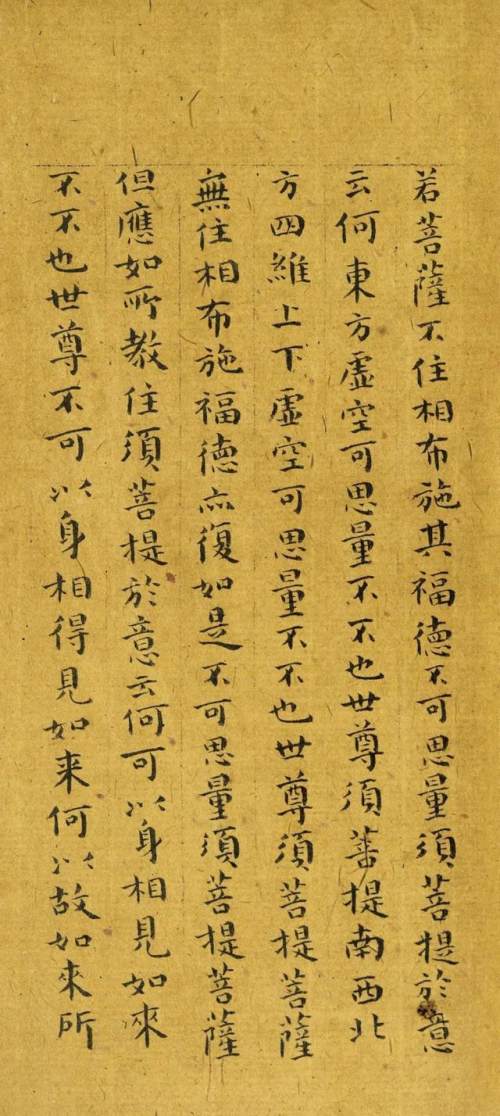 若菩薩不住相布施其福德不可思量須菩提於意
云何東方虛空可思量不不也世尊須菩提南西北
方四維上下虛空可思量不不也世尊須菩提菩薩
無住相布施福德亦復如是不可思量須菩提菩薩
但應如所教住須菩提於意云何可以身相見如來
不不也世尊不可以身相得見如来何以故如来所